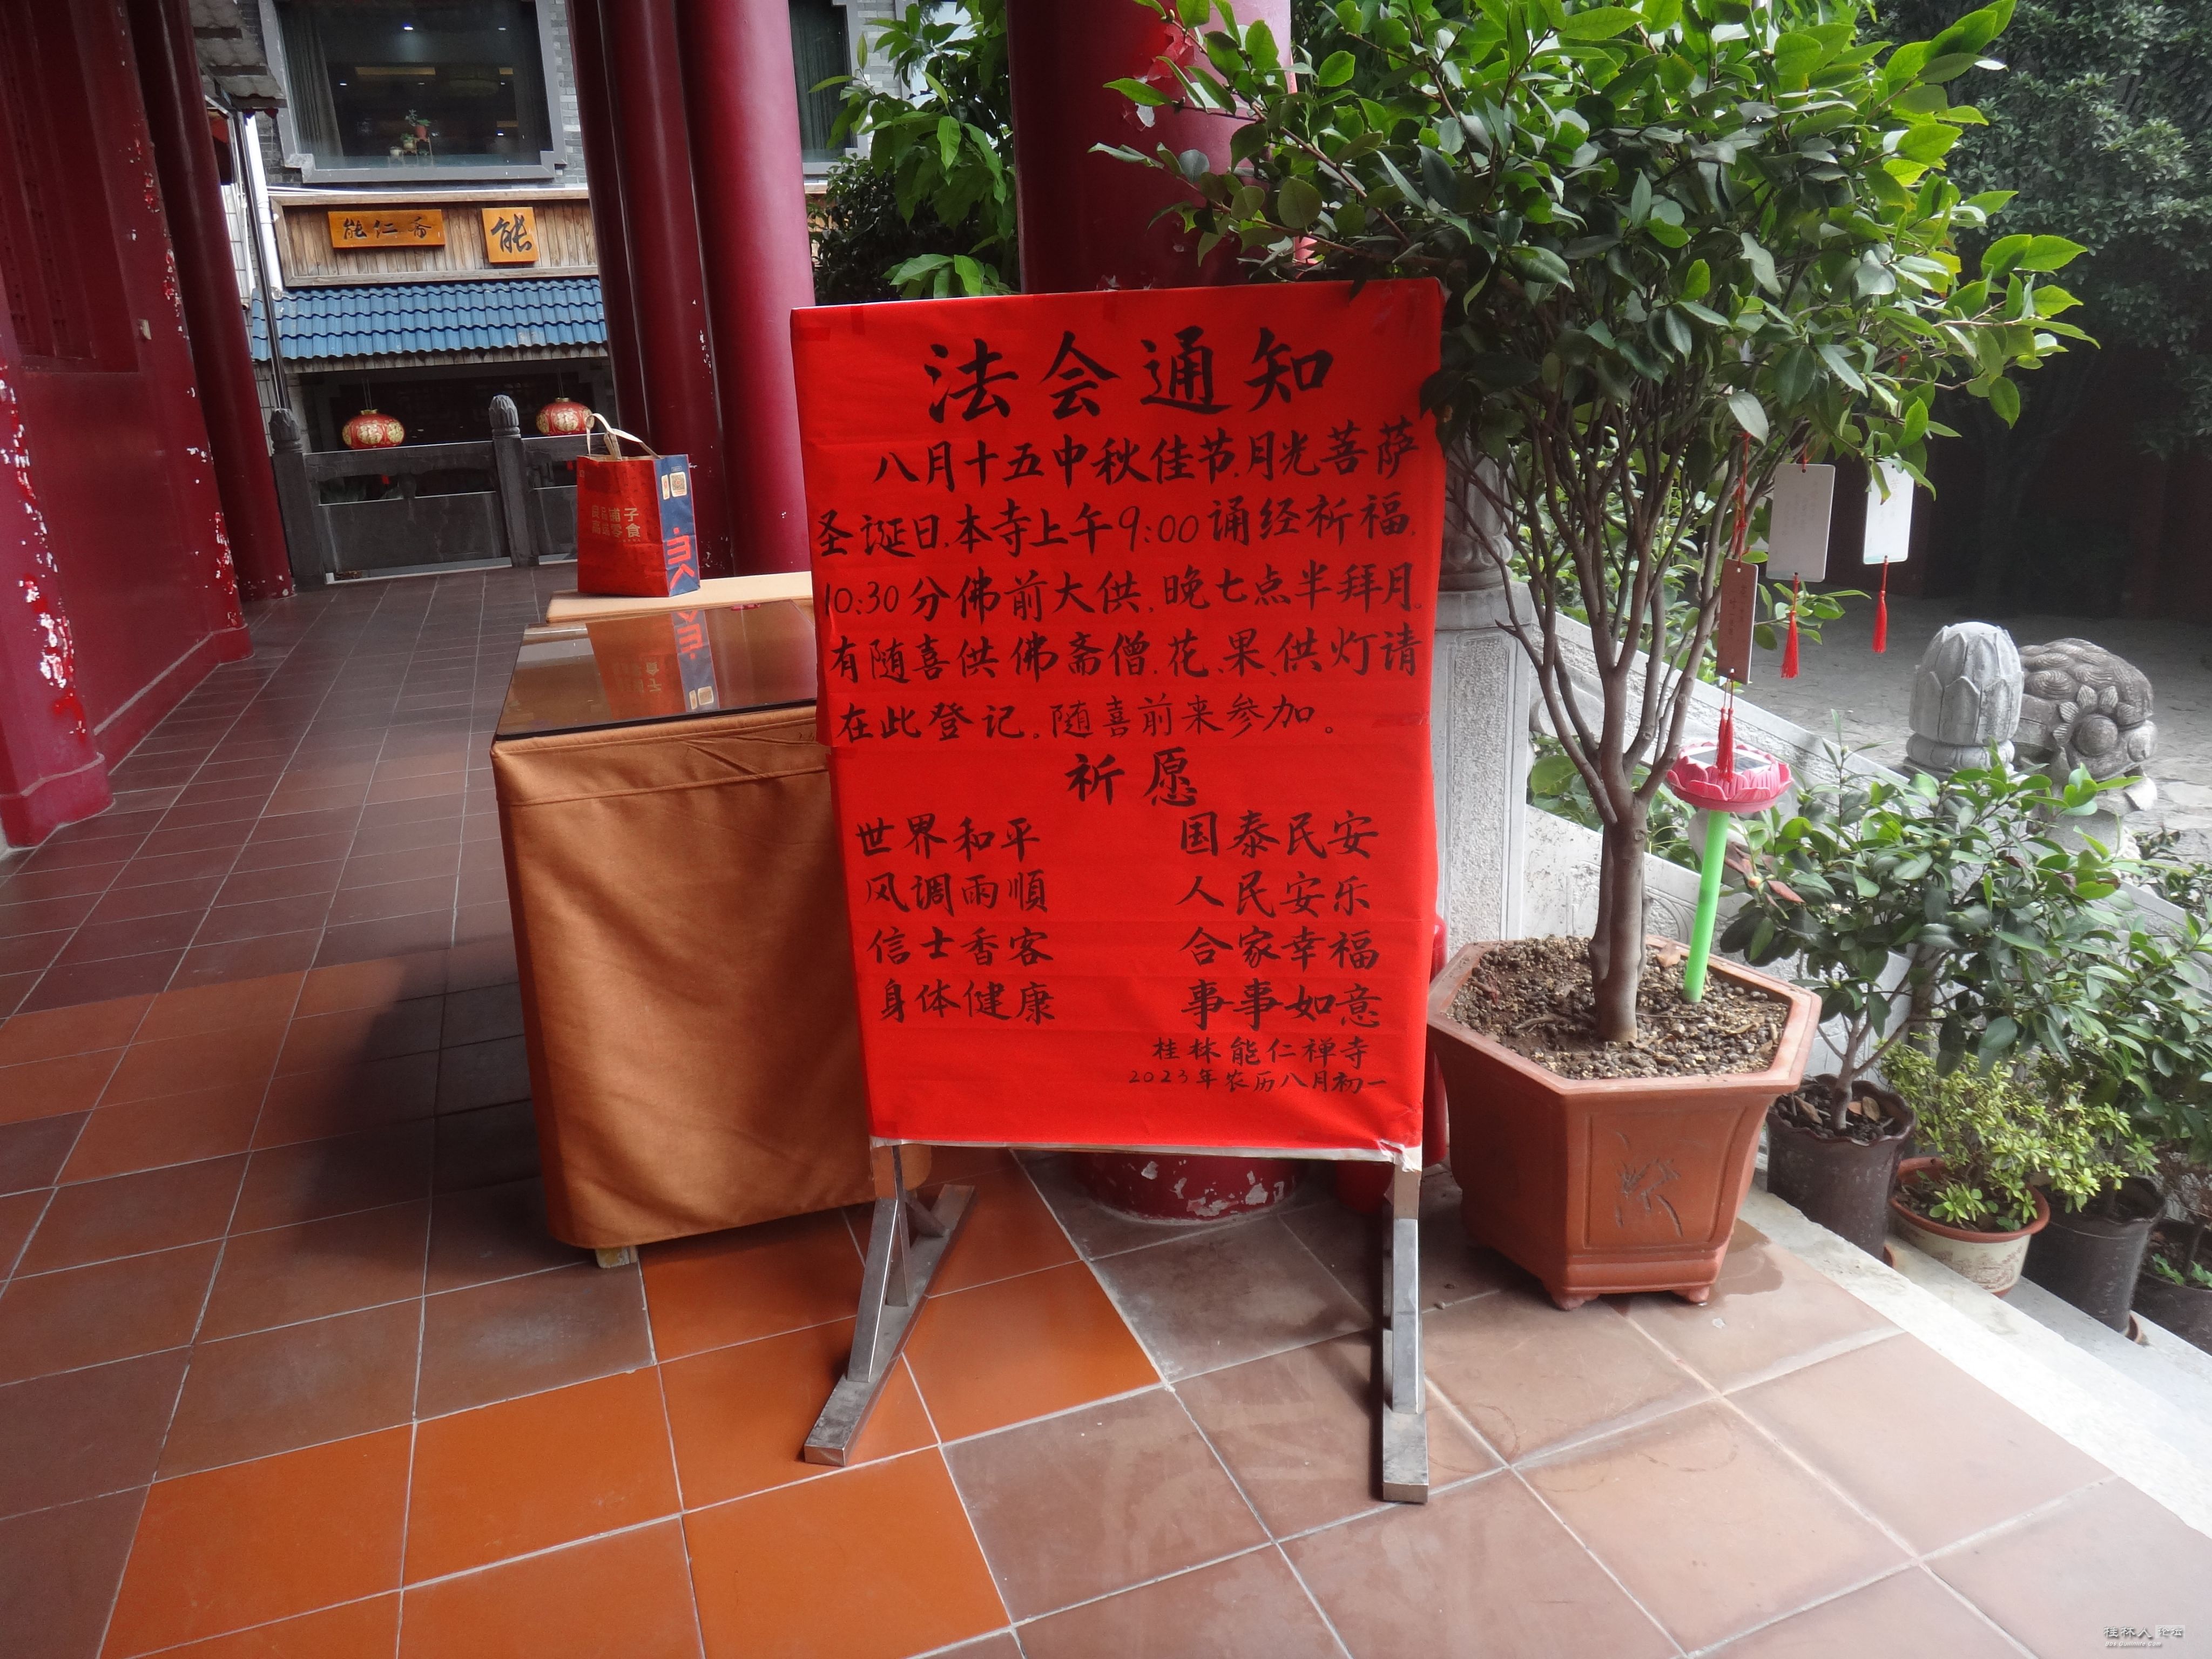 能仁香
能
良品铺子
高端零食
法会通知
八月十五中秋佳节,月光菩萨
圣诞日,本寺上午9:00诵经祈福,
10:30分佛前大供,晚七点半拜月,
有随喜供佛斋僧,花、果、供灯请
在此登记。随喜前来参加。
祈愿
世界和平 国泰民安
风调雨順 人民安乐
信士香客 合家幸福
身体健康 事事如意
桂林能仁禅寺
2023年农历八月初一
桂林人论坛